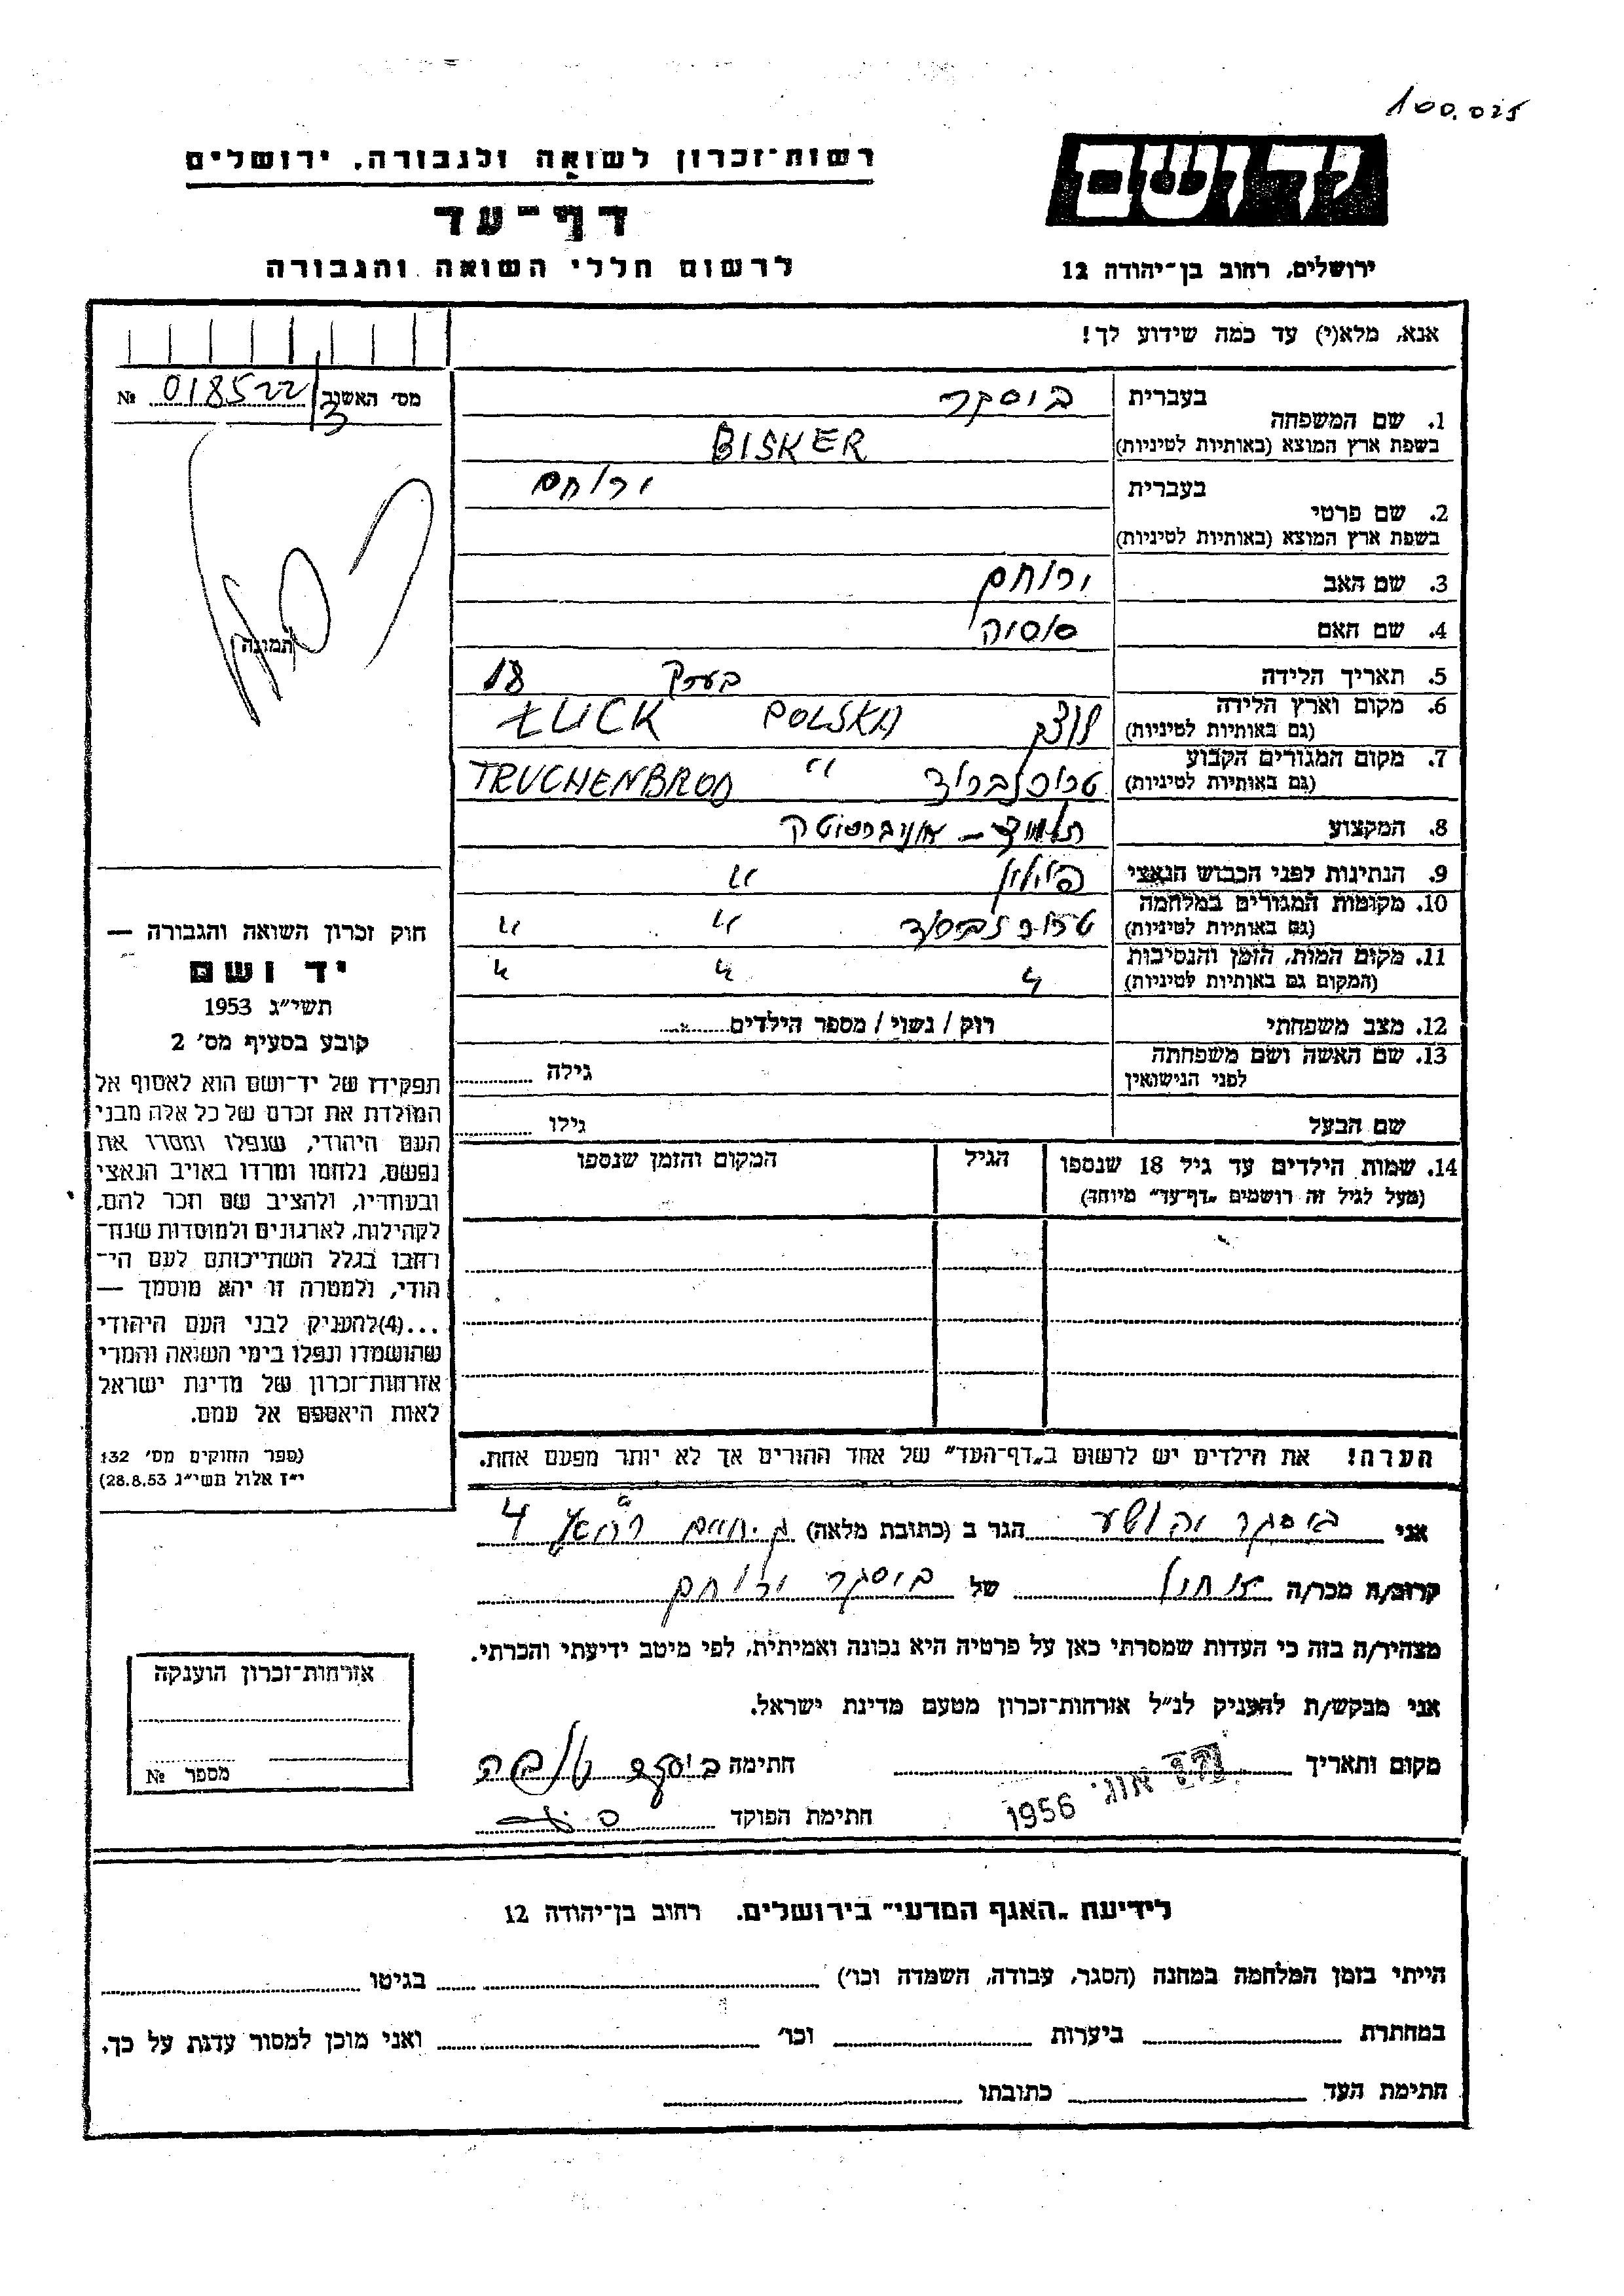 100.025
יד ושם
ירושלים, רחוב בן־יהודה 12
רשות־זכרון לשואה ולגבורה, ירושלים
דף־עד
לרשום חללי השואה והגבורה
אנא, מלא(י) עד כמה שידוע לך!
מס׳ האשנב 3 № 018522
1. שם המשפחה
בעברית ביסקר
בשפת ארץ המוצא (באותיות לטיניות) BISKER
2. שם פרטי
בעברית ירוחם
בשפת ארץ המוצא (באותיות לטיניות)
3. שם האב ירוחם
4. שם האם סוסיה
5. תאריך הלידה בערך 18
6. מקום וארץ הלידה (גם באותיות לטיניות) לוצק POLSKA ŁUCK
7. מקום המגורים הקבוע (גם באותיות לטיניות) טרוכנברוד " TRUCHENBROD
8. המקצוע תלמיד – אוניברסיטה
9. הנתינות לפני הכבוש הנאצי פולין "
10. מקומות המגורים במלחמה (גם באותיות לטיניות) " "
11. מקום המות, הזמן והנסיבות (המקום גם באותיות לטיניות) " " "
12. מצב משפחתי רוק / נשוי / מספר הילדים
13. שם האשה ושם משפחתה לפני הנישואין גילה
שם הבעל גילו
14. שמות הילדים עד גיל 18 שנספו (מעל לגיל זה רושמים „דף־עד” מיוחד)
הגיל
המקום והזמן שנספו
תמונה
חוק זכרון השואה והגבורה —
יד ושם
תשי״ג 1953
קובע בסעיף מס׳ 2
תפקידו של יד־ושם הוא לאסוף אל
המולדת את זכרם של כל אלה מבני
העם היהודי, שנפלו ומסרו את
נפשם, נלחמו ומרדו באויב הנאצי
ובעוזריו, ולהציב שם וזכר להם,
לקהילות, לארגונים ולמוסדות שנח־
רבו בגלל השתייכותם לעם הי־
הודי, ולמטרה זו יהא מוסמך —
...(4) להעניק לבני העם היהודי
שהושמדו ונפלו בימי השואה והמרי
אזרחות־זכרון של מדינת ישראל
לאות היאספם אל עמם.
(ספר החוקים מס׳ 132
י״ז אלול תשי״ג 28.8.53)
הערה! את הילדים יש לרשום ב„דף־העד” של אחד ההורים אך לא יותר מפעם אחת.
אני ביסקר יהושע הגר ב (כתובת מלאה) ק. חיים 4
קרוב/ה מכר/ה של ביסקר ירוחם
מצהיר/ה בזה כי העדות שמסרתי כאן על פרטיה היא נכונה ואמיתית, לפי מיטב ידיעתי והכרתי.
אני מבקש/ת להעניק לנ״ל אזרחות־זכרון מטעם מדינת ישראל.
מקום ותאריך אוג׳ 1956 חתימה ביסקר
חתימת הפוקד
אזרחות־זכרון הוענקה
מספר №
לידיעת „האגף המדעי” בירושלים, רחוב בן־יהודה 12
הייתי בזמן המלחמה במחנה (הסגר, עבודה, השמדה וכו׳) בגיטו
במחתרת ביערות וכו׳ ואני מוכן למסור עדות על כך.
חתימת העד כתובתו